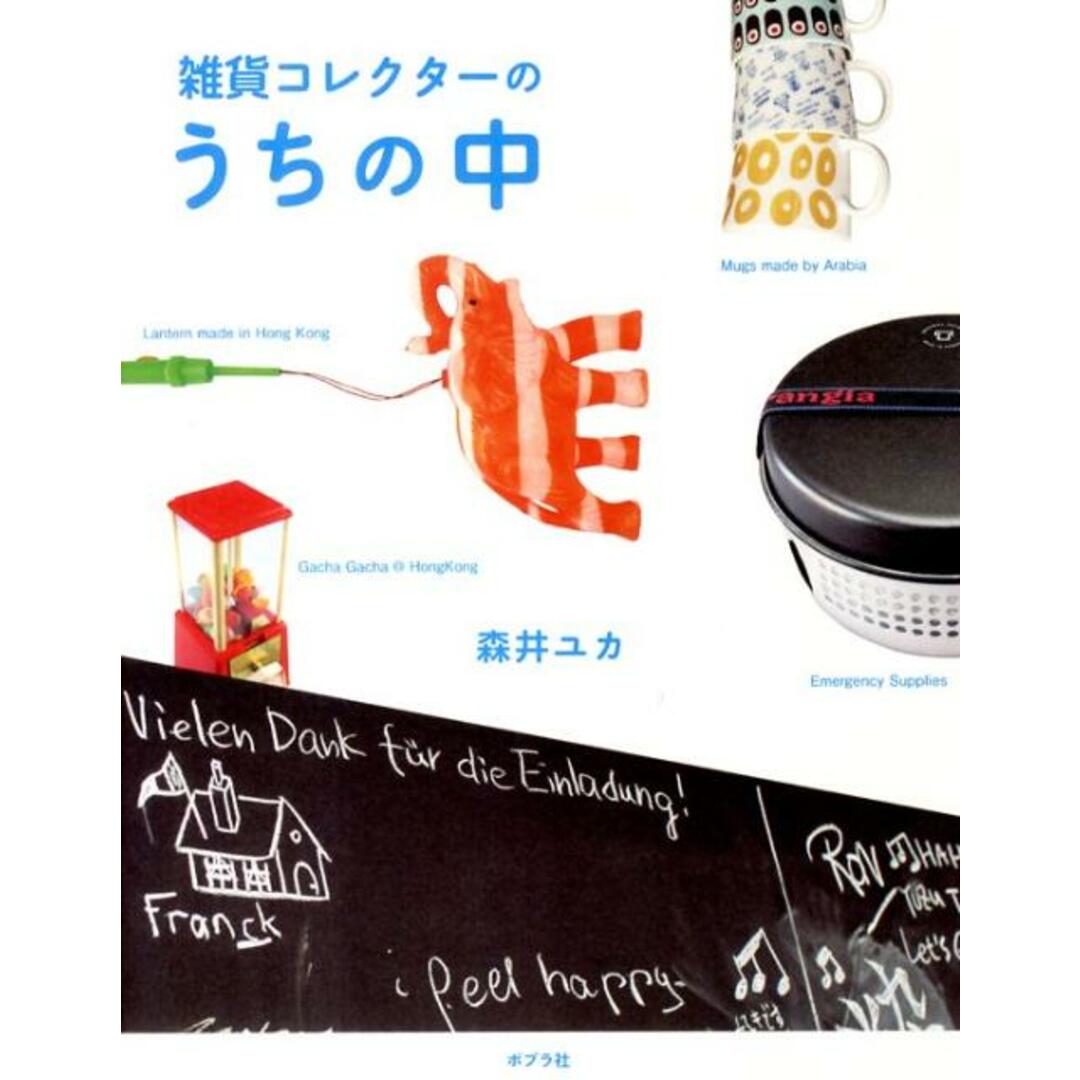 雑貨コレクターの
うちの中
Mugs made by Arabia
Lantern made in Hong Kong
rangia
Gacha Gacha @ HongKong
森井ユカ
Emergency Supplies
Vielen Dank für die Einladung!
Franck
i feel happy
RON
HAH
YUZU T
Let's
ポプラ社